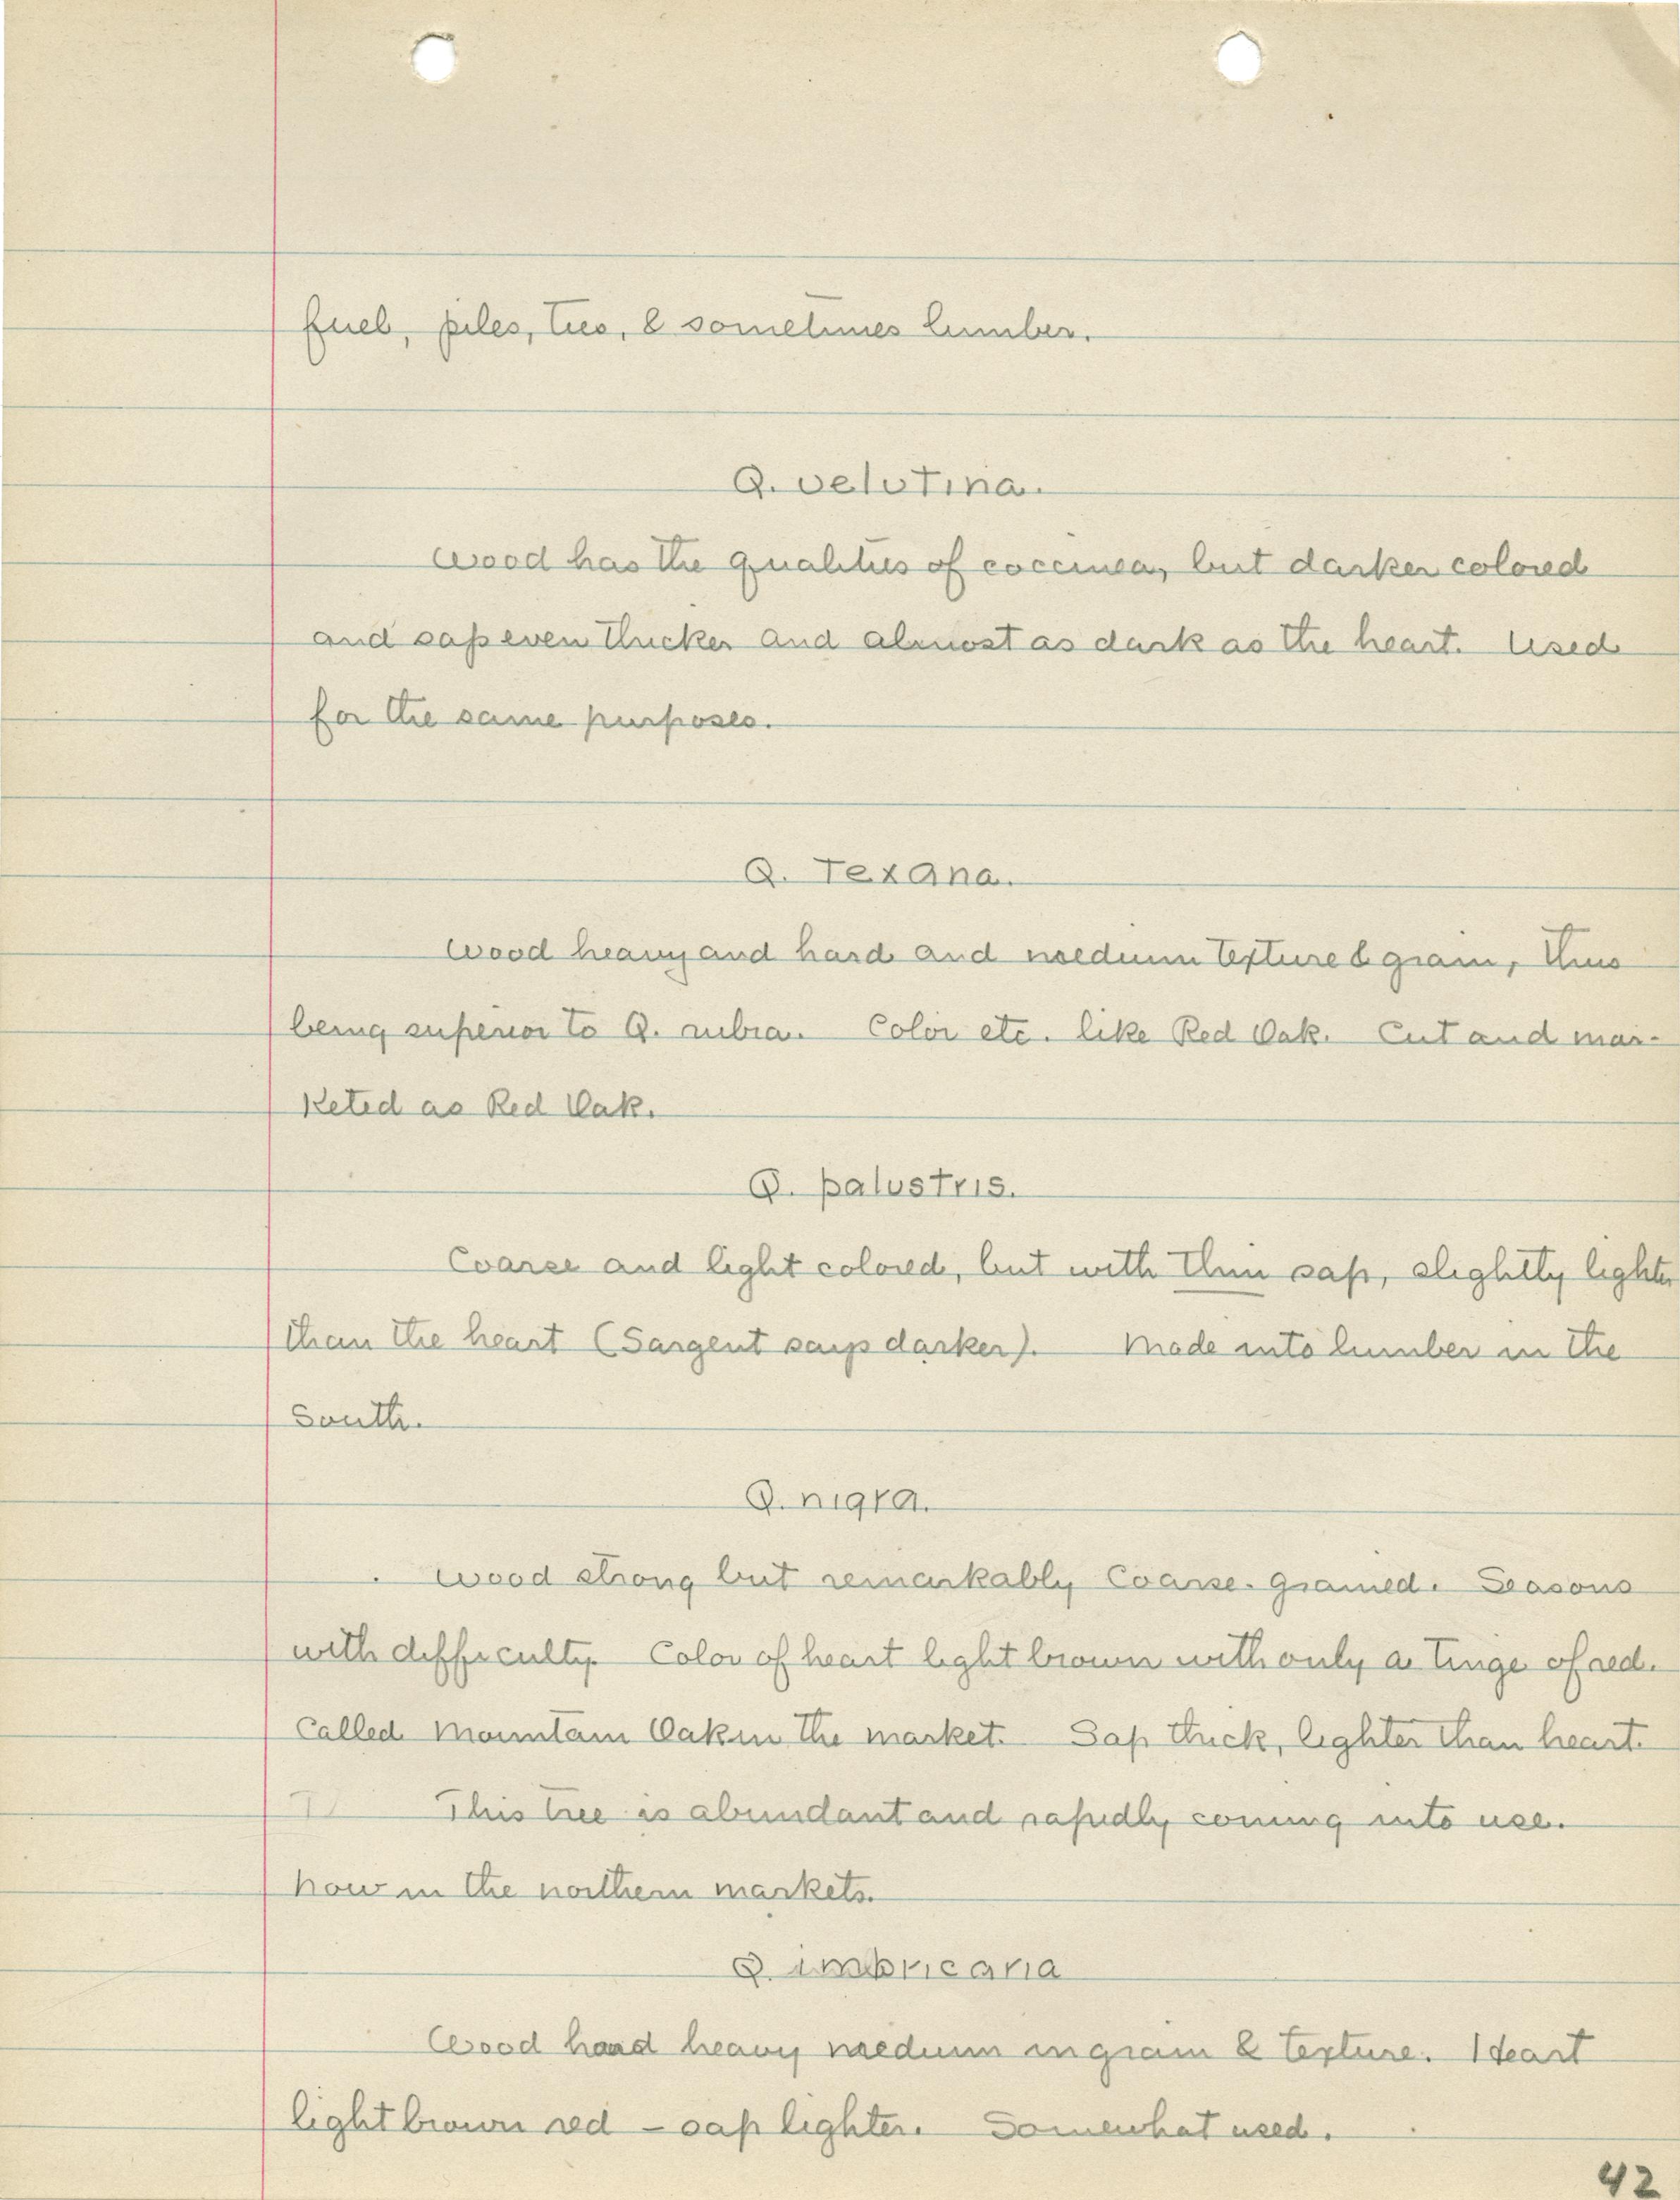 fuel, piles, ties, & sometimes lumber.
Q. velutina.
Wood has the qualities of coccinea, but darker colored
and sap even thicker and almost as dark as the heart. Used
for the same purposes.
Q. Texana.
Wood heavy and hard and medium texture & grain, thus
being superior to Q. rubra. Color etc. like Red Oak. Cut and mar-
keted as Red Oak.
Q. palustris.
Coarse and light colored, but with thin sap, slightly lighter
than the heart (Sargent says darker). Made into lumber in the
South.
Q. nigra.
Wood strong but remarkably coarse-grained. Seasons
with difficulty. Color of heart light brown with only a tinge of red.
Called Mountain Oak in the market. Sap thick, lighter than heart.
This tree is abundant and rapidly coming into use.
now in the northern markets.
Q. imbricaria
Wood hard heavy medium in grain & texture. Heart
light brown red – sap lighter. Somewhat used.
42